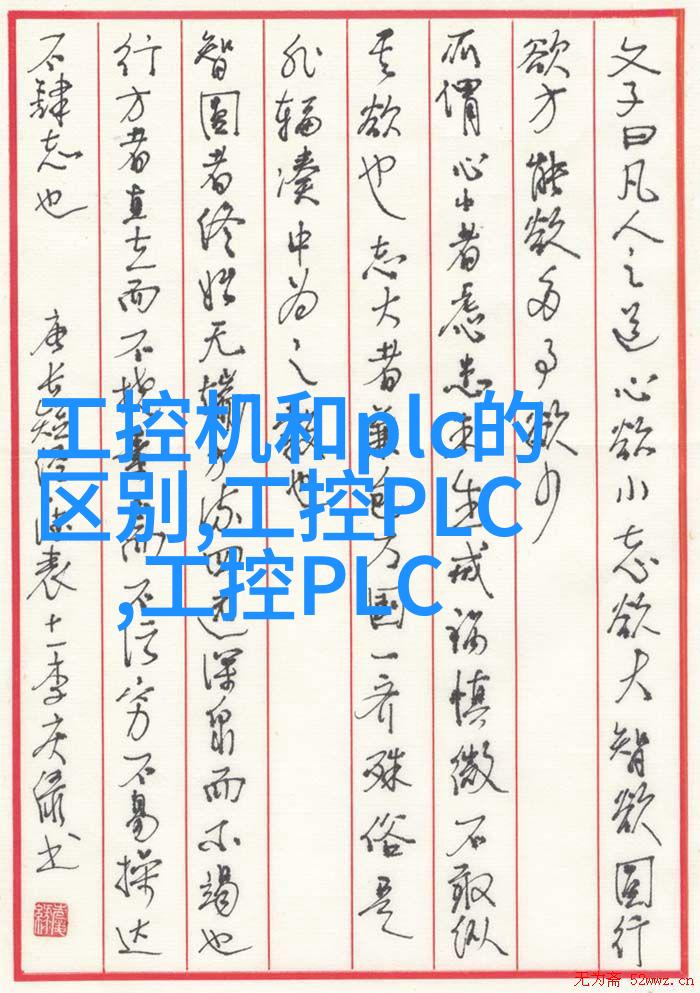 文子曰凡人之道心欲小志欲大智欲圆行
欲方能欲多事欲少
所谓心小者虑患未生戒祸慎微不敢纵
其欲也志大者兼包万国一齐殊俗是
非辐凑中为之毂也
智圆者终始无端方流四远深泉而不竭也
行方者直立而不挠素而不污穷不易操达
不肆志也
唐长短经表十一李庆书
工控机和plc的
区别,工控PLC
,工控PLC
无为斋 52wwz.cn